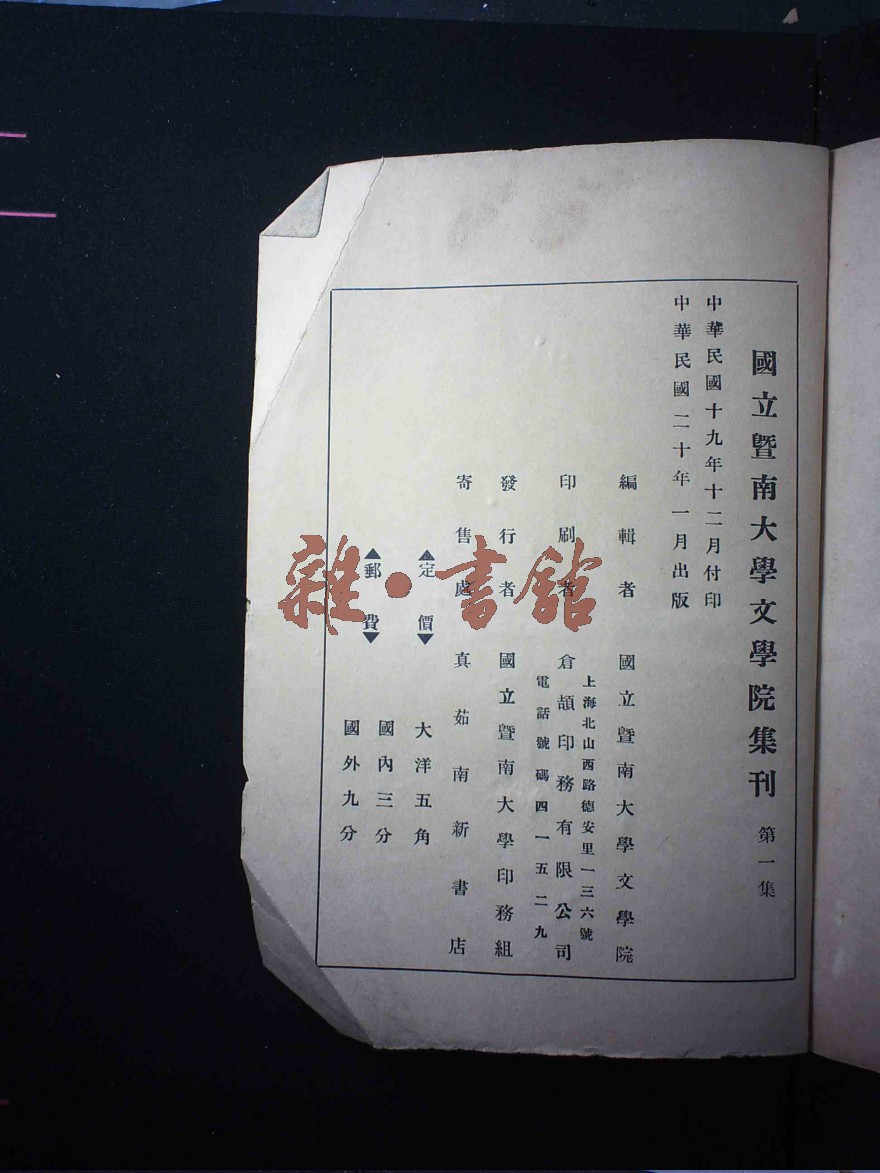 國立曁南大學文學院集刊 第一集
中華民國十九年十二月付印
中華民國二十年一月出版
編輯者 國立曁南大學文學院
印刷者 倉頡印務有限公司
上海北山西路德安里一三六號
電話號碼四一五二九
發行者 國立曁南大學印務組
寄售處 真茹南新書店
▲定價▼ 大洋五角
▲郵費▼ 國內三分
國外九分
雜·書館